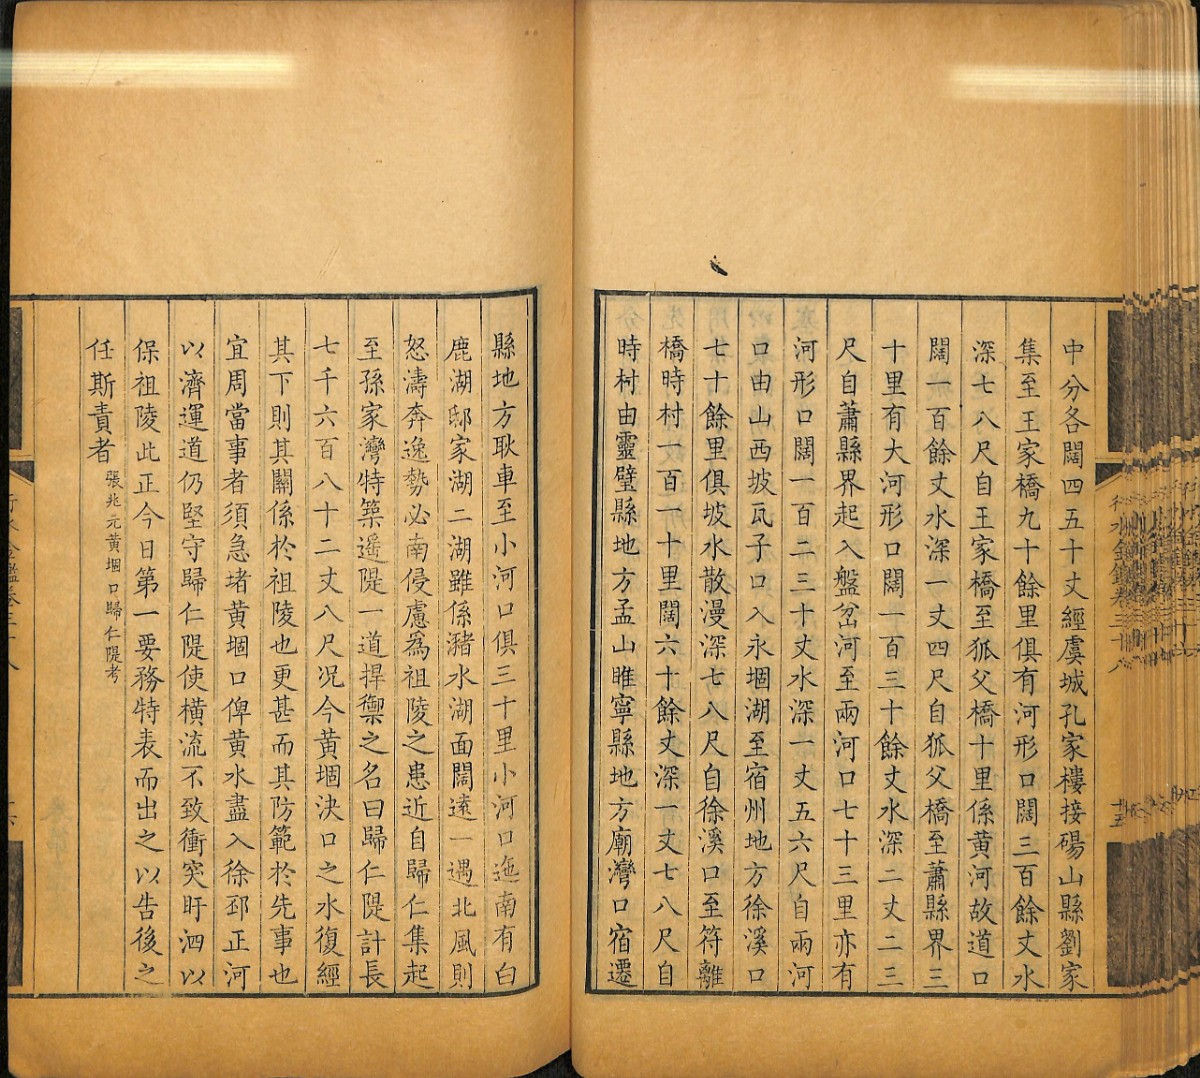 中分各闊四五十丈經虞城孔家樓接碭山縣劉家
集至王家橋九十餘里俱有河形口闊三百餘丈水
深七八尺自王家橋至狐父橋十里係黃河故道口
闊一百餘丈水深一丈四尺自狐父橋至蕭縣界三
十里有大河形口闊一百三十餘丈水深二丈二三
尺自蕭縣界起入盤岔河至兩河口七十三里亦有
河形口闊一百二三十丈水深一丈五六尺自兩河
口由山西坡瓦子口入永堌湖至宿州地方徐溪口
七十餘里俱坡水散漫深七八尺自徐溪口至符離
橋時村一百一十里闊六十餘丈深一丈七八尺自
時村由靈璧縣地方孟山睢寧縣地方廟灣口宿遷
縣地方耿車至小河口俱三十里小河口迤南有白
鹿湖邸家湖二湖雖係瀦水湖面闊遠一遇北風則
怒濤奔逸勢必南侵慮為祖陵之患近自歸仁集起
至孫家灣特築遙隄一道捍禦之名曰歸仁隄計長
七千六百八十二丈八尺況今黃堌決口之水復經
其下則其關係於祖陵也更甚而其防範於先事也
宜周當事者須急堵黃堌口俾黃水盡入徐邳正河
以濟運道仍堅守歸仁隄使橫流不致衝突盱泗以
保祖陵此正今日第一要務特表而出之以告後之
任斯責者 張兆元黃堌口歸仁隄考
行水金鑑卷三十八
十五